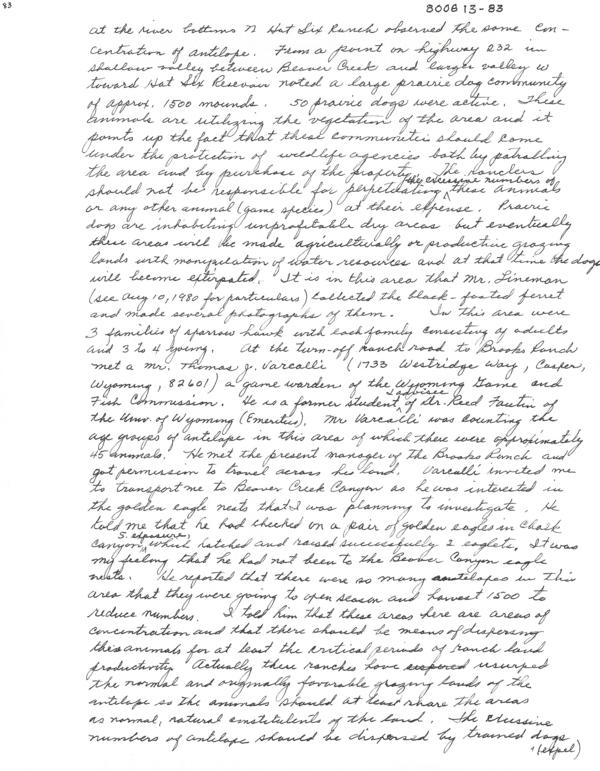 83
8008 13-83
at the river bottoms N Hat Six Ranch observed the same con-
centration of antilope. From a point on highway 232 in
shallow valley between Beaver Creek and larger valley W
toward Hat Six Reservoir noted a large prairie dog community
of approx. 1500 mounds. 50 prairie dogs were active. These
animals are utilizing the vegetation of the area and it
points up the fact that these communities should come
under the protection of wildlife agencies both by patrolling
the area and by purchase of the property. The ranchers
should not be responsible for perpetuating the excessive numbers of these animals
or any other animal (game species) at their expense. Prairie
dogs are inhabiting unprofitable dry areas but eventually
these areas will be made agriculturally or productive grazing
lands with manipulation of water resources and at that time the dogs
will become extirpated. It is in this area that Mr. Lineman
(see Aug 10, 1980 for particulars) collected the black-footed ferret
and made several photographs of them. In this area were
3 families of sparrow hawk with each family consisting of adults
and 3 to 4 young. At the turn-off ranch road to Brooks Ranch
met a Mr. Thomas J. Varcalli (1733 Westridge Way, Casper,
Wyoming, 82601) a game warden of the Wyoming Game and
Fish Commission. He is a former student & advisee of Dr. Reed Fautin of
the Univ. of Wyoming (Emeritus). Mr Varcalli was counting the
age groups of antelope in this area of which there were approximately
45 animals. He met the present manager of the Brooks Ranch and
got permission to travel across his land. Varcalli invited me
to transport me to Beaver Creek Canyon as he was interested in
the golden eagle nests that I was planning to investigate. He
told me that he had checked on a pair of golden eagles in Chalk
Canyon, S. exposure, which hatched and raised successfully 2 eaglets. It was
my feeling that he had not been to the Beaver Canyon eagle
nests. He reported that there were so many antelopes in this
area that they were going to open season and harvest 1500 to
reduce numbers. I told him that these areas here are areas of
concentration and that there should be means of dispersing
the animals for at least the critical periods of ranch land
productivity. Actually these ranches have usurped
the normal and originally favorable grazing lands of the
antelope so the animals should at least share the areas
as normal, natural constituents of the land. The excessive
numbers of antelope should be dispersed by trained dogs
(expel)